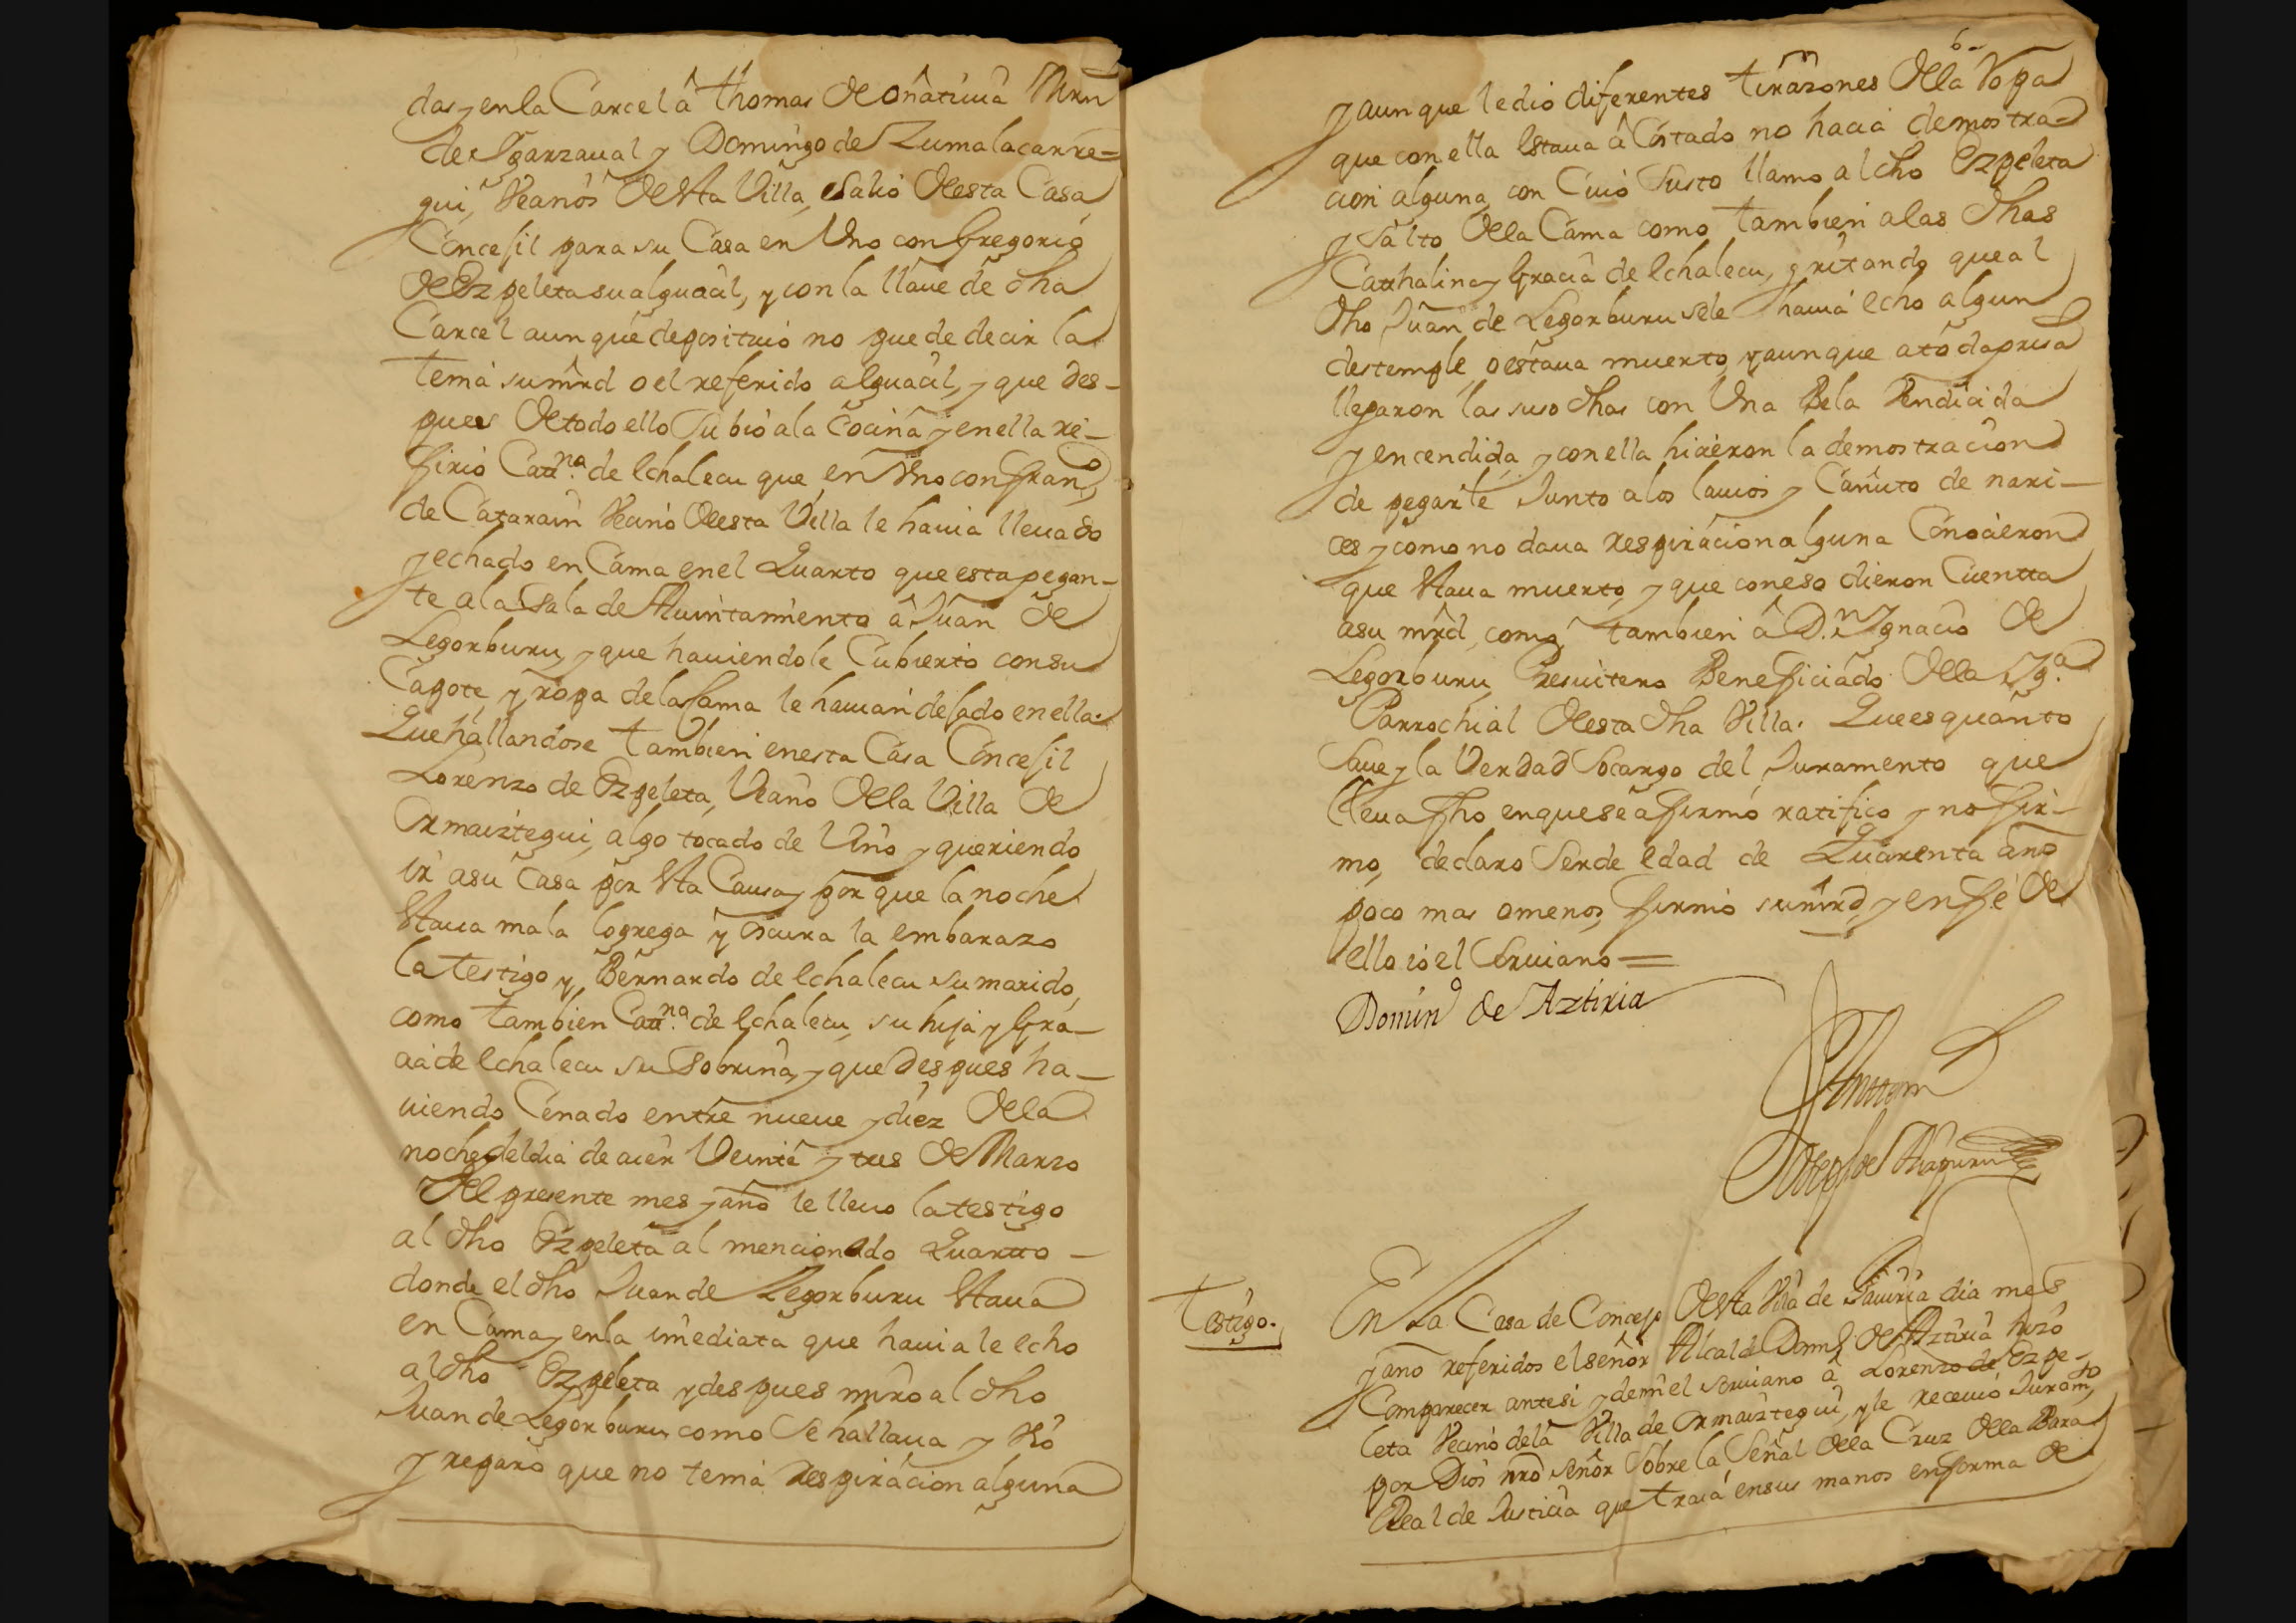 das, y en la Carcel â Thomas de oñatiuia Mrn
de Ygarzaual y Domingo de Zumalacarre=
gui, Vecinos desta Villa, salio desta Casa
Concejil para su Casa en Vno con Gregorio
de Ezpeleta su alguacil, y con la llaue de dha
Carcel aunque deposituio no puede decir la
tenia su mrd o el referido alguacil, y que des-
pues de todo ello Subio a la Cocina y en ella re-
firio Catt.na de Echalecu que en Vno con Fran.co
de Catarain Vecino desta Villa le hauia lleuado
y echado en Cama en el Quarto que esta pegan-
te a la Sala de Aiuintamiento â Juan de
Legorburu, y que hauiendole Cubierto con su
Capote, y ropa de la Cama le hauian dejado en ella.
Que hallandose tambien en esta Casa Concejil
Lorenzo de Ezpeleta, Vecino de la Villa de
Ormaiztegui, algo tocado de Vino y queriendo
ir a su Casa por sta Causa, y por que la noche
staua mala lobrega y oscura la embarazo
la testigo y Bernardo de Echalecu su marido,
como tambien Catt.na de Echalecu, su hija y Gra-
cia de Echalecu su Sobrina, y que despues ha-
uiendo Cenado entre nueue y diez de la
noche del dia de aier Veinte y tres de Marzo
del presente mes y año le lleuo la testigo
al dho Ezpeleta al mencionado Quartto -
donde el dho Juan de Legorburu staua
en Cama, y en la inmediata que hauia le echo
al dho Ezpeleta y despues miro al dho
Juan de Legorburu como Se hallaua y Vio
y reparo que no tenia respiracion alguna
6
y aunque le dio diferentes tirazones de la Ropa
que con ella estaua â Costado no hacia demostra=
cion alguna, con Cuio Susto llamo al dho Ezpeleta
y Salto de la Cama como tambien a las dhas
Catthalina, y Gracia de Echalecu, gritando que al
dho Juan de Legorburu se le hauia echo algun
destemple, o estaua muerto, y aunque a toda prisa
llegaron las suso dhas con Vna Bela Bendicida
y encendida, y con ella hicieron la demostracion
de pegarle Junto a los lauios y Cañuto de nari-
ces y como no daua respiracion alguna Conocieron
que staua muerto, y que con eso dieron Cuentta
a su mrd, como tambien â D.n Ygnacio de
Legorburu Presuitero Beneficiado de la Yg.a
Parrochial desta dha Villa. Que es quanto
Saue y la Verdad Socargo del Juramento que
lleua fho en que se afirmo ratifico y no fir-
mo, declaro Ser de edad de Quarenta años
poco mas o menos, firmo su mrd, y en fe de
ello io el Scriuano =
Domin.o de Aztiria
Antemi
Joseph de
Testigo.
En la Casa de Concejo desta Villa de Gauiria dia mes
y año referidos el señor Alcalde Domg.o de Aztiria hizo
Comparecer ante si y de mi el Scriuano â Lorenzo de Ezpe-
leta Vecino de la Villa de Ormaiztegui, y le receuio Juram.to
por Dios nro Señor Sobre la Señal de la Cruz de la Bara
Real de Justicia que traia en sus manos en forma de